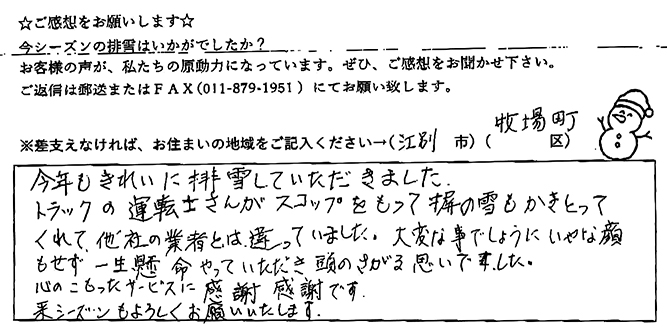 ☆ご感想をお願いします☆
今シーズンの排雪はいかがでしたか?
お客様の声が、私たちの原動力になっています。ぜひ、ご感想をお聞かせ下さい。
ご返信は郵送またはFAX(011-879-1951)にてお願い致します。
※差支えなければ、お住まいの地域をご記入ください→(江別 市)(牧場町 区)
今年もきれいに排雪していただきました。
トラックの運転士さんがスコップをもって塀の雪もかきとって
くれて、他社の業者とは違っていました。大変な事でしょうにいやな顔
もせず一生懸命やっていただき頭のさがる思いでました。
心のこもったサービスに感謝感謝です。
来シーズンもよろしくお願いいたします。